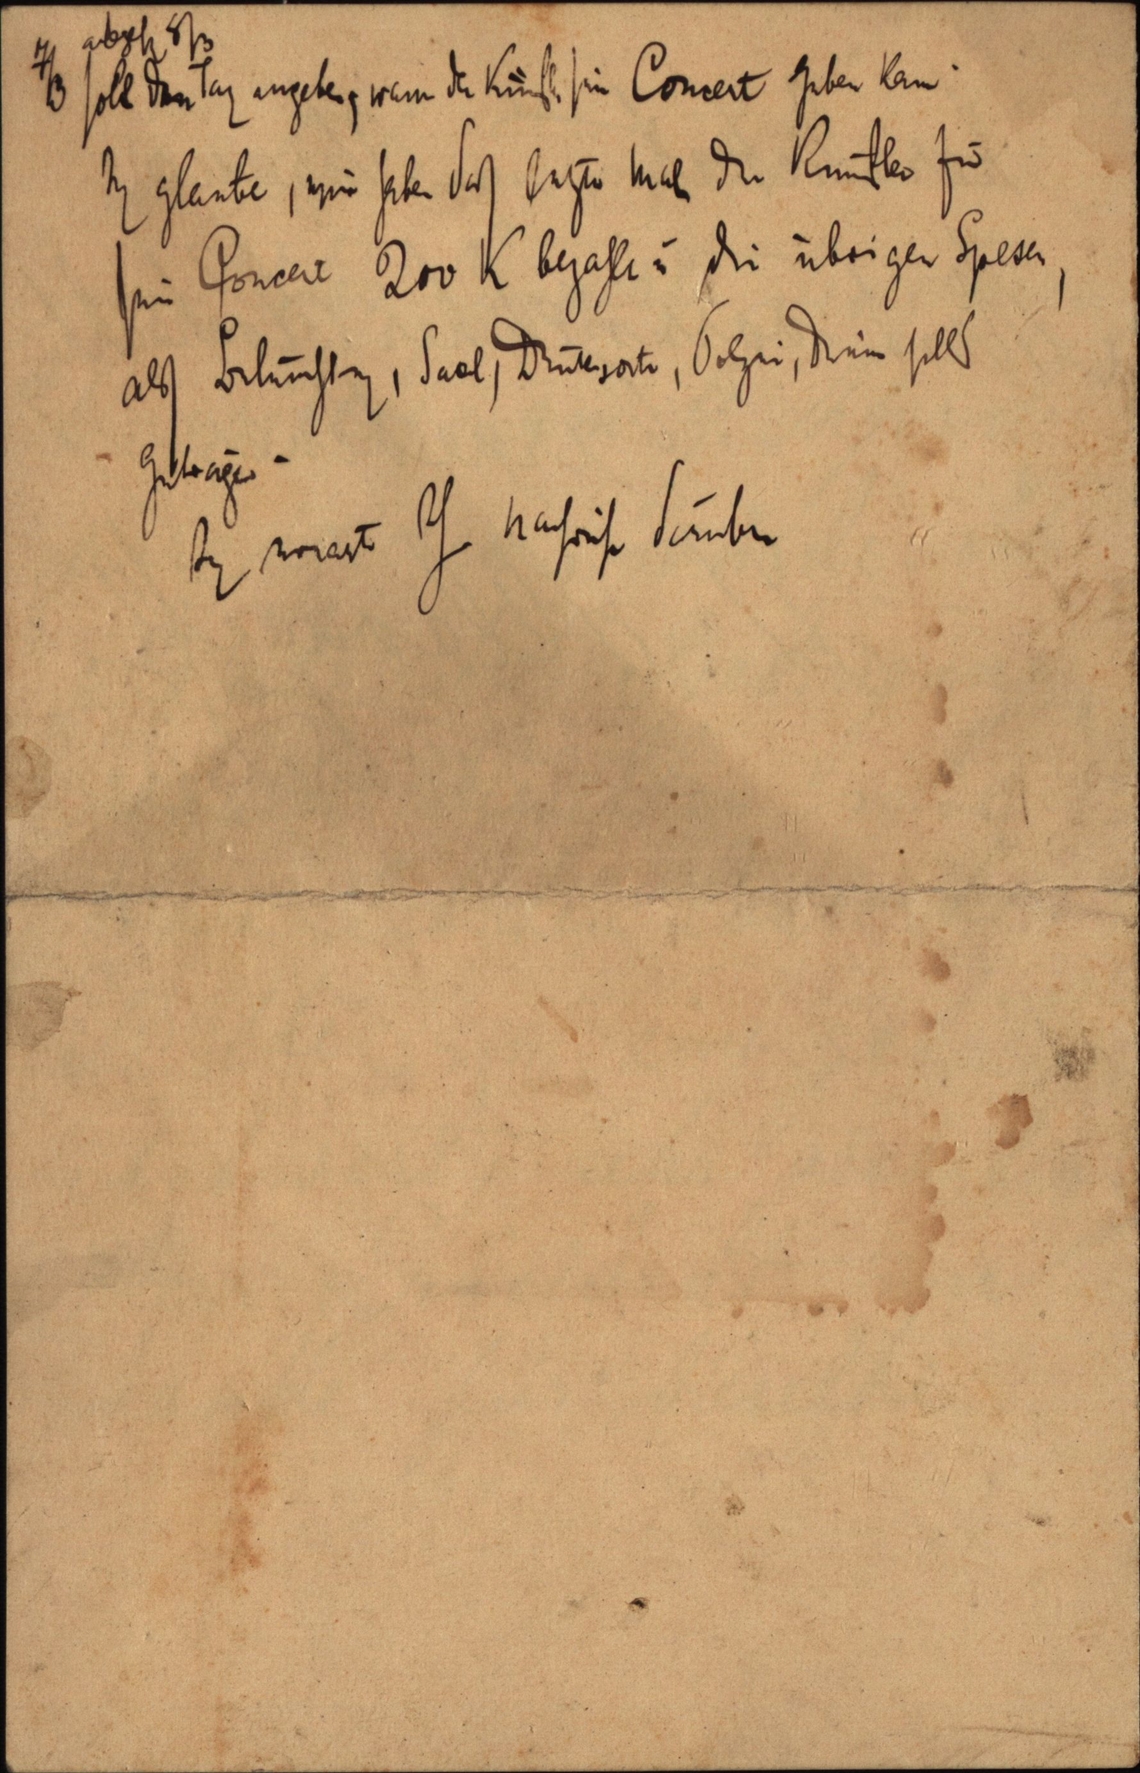 abgeh 8/3
7/3 soll den Tag angeben, wann der Künstler sein Concert geben kann.
Ich glaube, wir haben das letzte Mal dem Künstler für
sein Concert 200 K bezahlt u die übrigen Spesen,
als Beleuchtung, Saal, Drucksorten, Polizei, Diener selbst
getragen -
Ich erwarte Ihre Nachricht darüber